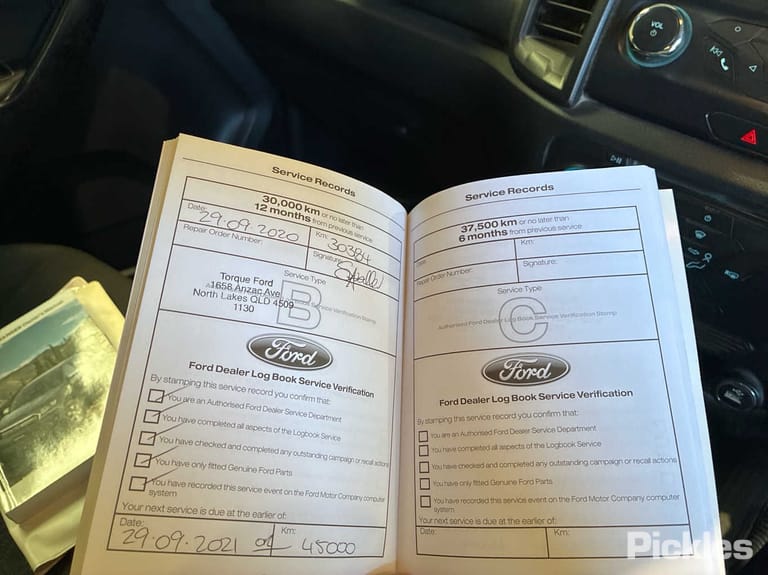 VOL
Service Records
30,000 km or no later than
12 months from previous service
Date: 29.09.2020
Km: 30384
Repair Order Number:
Signature:
Service Type
B
Torque Ford
1658 Anzac Ave
North Lakes QLD 4509
1130
Book Service Verification Stamp
Ford
Ford Dealer Log Book Service Verification
By stamping this service record you confirm that:
You are an Authorised Ford Dealer Service Department
You have completed all aspects of the Logbook Service
You have checked and completed any outstanding campaign or recall actions
You have only fitted Genuine Ford Parts
You have recorded this service event on the Ford Motor Company computer
system
Your next service is due at the earlier of:
Date: Km:
29.09.2021 or 45000
Service Records
37,500 km or no later than
6 months from previous service
Date: Km:
Repair Order Number: Signature:
Service Type
C
Authorised Ford Dealer Log Book Service Verification Stamp
Ford
Ford Dealer Log Book Service Verification
By stamping this service record you confirm that:
You are an Authorised Ford Dealer Service Department
You have completed all aspects of the Logbook Service
You have checked and completed any outstanding campaign or recall actions
You have only fitted Genuine Ford Parts
You have recorded this service event on the Ford Motor Company computer
system
Your next service is due at the earlier of:
Date: Km:
Pickles